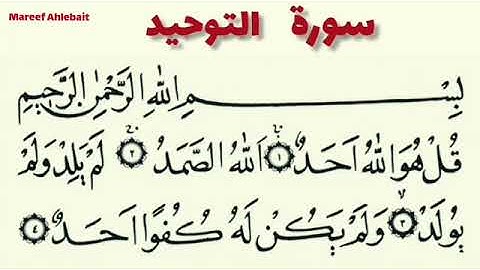 Mareef Ahlebait
سورة التوحيد
بِسْمِ اللهِ الرَّحْمٰنِ الرَّحِيْمِ
قُلْ هُوَ اللهُ اَحَدٌ ۝١ اَللهُ الصَّمَدُ ۝٢ لَمْ يَلِدْ وَلَمْ
يُوْلَدْ ۝٣ وَلَمْ يَكُنْ لَهُ كُفُوًا اَحَدٌ ۝٤